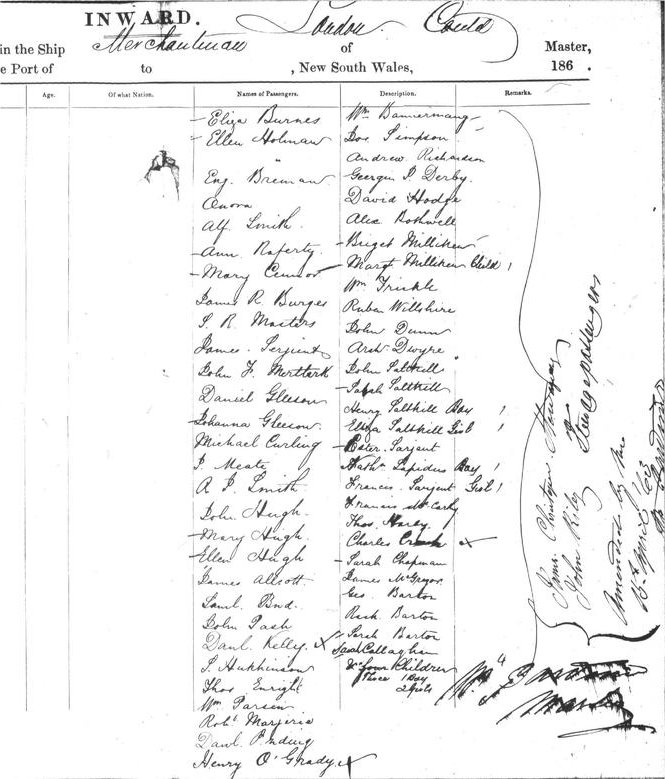 INWARD.
in the Ship Merchantman of London Master,
e Port of to , New South Wales, 186 .
Age. Of what Nation. Names of Passengers. Description. Remarks.
Eliza Burnes
Ellen Holman
"
Eng. Brennan
Onora
Alf Smith
Ann Raferty
Mary Connor
James R Burges
S. R. Masters
James Serjeant
John F.
Daniel Gleeson
Johanna Gleeson
Michael Curling
P. Meate
A. P. Smith
John Hugh
Mary Hugh
Ellen Hugh
James Allsott
Saml. Bnd.
John Pash
Danl Kelly x
S. Hutkinson
Thos Enright
Wm Parsen
Robt
Danl.
Henry O'Grady x
Wm Bannerman
Jos Simpson
Andrew Richardson
George P. Derby
David Hodge
Alex Bothwell
Briget Milliken
Margt Milliken Child 1
Wm Trickle
Ruben Willshire
John Dunn
Arch Dwyre
John Saltkill
Sarah Saltkill
Henry Saltkill Boy 1
Eliza Saltkill Girl 1
Ester Sarjent
Nathn Lapidus Boy 1
Francis Sarjent Girl 1
Francis McCarty
Thos. Harey
Charles x
Sarah Chapman
James McGregor
Geo Barton
Rich Barton
Sarah Barton
Sarah Callaghan
& four Children
Boy
2 Girls
4
John Riley
Steerage passengers
Amended by me